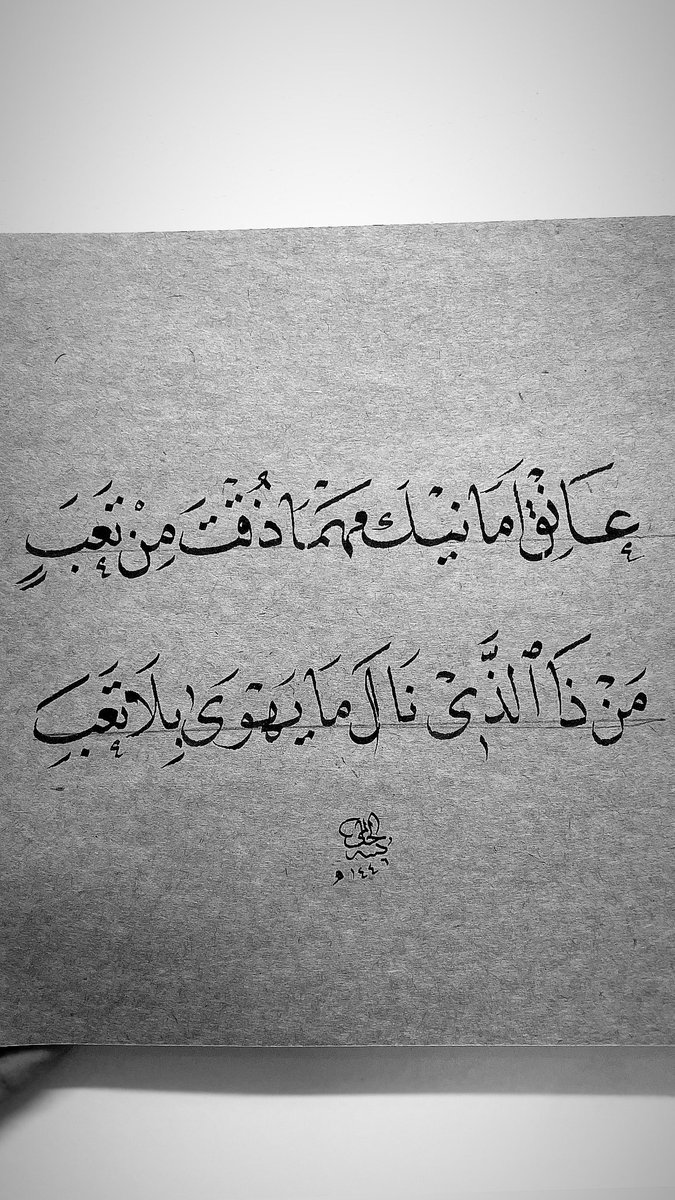 عَانِقْ اَمَانيْكَ مَهْمَا ذُقْتَ مِنْ تَعَبٍ
مَنْ ذَا ٱلَّذِيْ نَالَ مَا يَهْوَىٰ بِلَا تَعَبِ
١٤٤٦